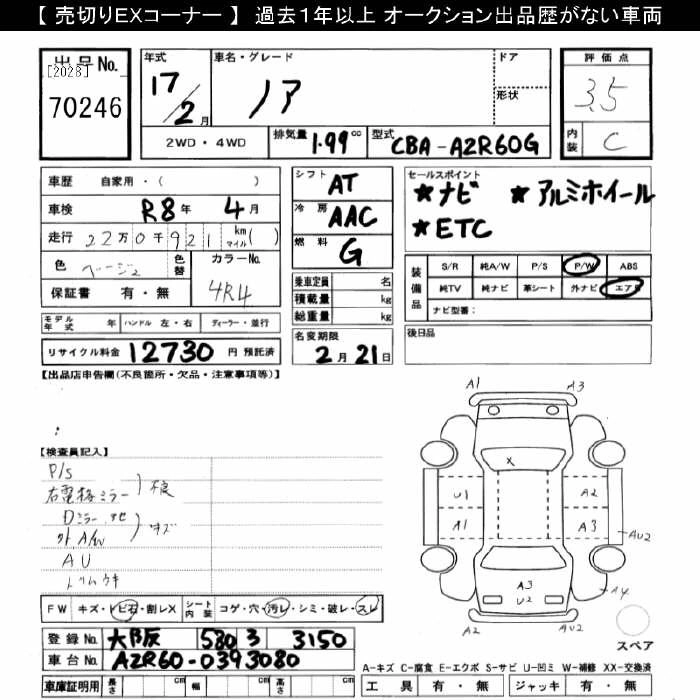 【 売切りEXコーナー 】 過去1年以上 オークション出品歴がない車両
出品No.
[2028]
70246
年式
17/2月
車名・グレード
ノア
ドア
形状
2WD・4WD
排気量 1.99 cc
型式 CBA-AZR60G
評価点
3.5
内装 C
車歴 自家用・( )
車検 R8年 4月
走行 22万0千921 km マイル( )
色 ベージュ 色替 カラーNo. 4R4
保証書 有・無
モデル年式 年 ハンドル 左・右 ディーラー・並行
リサイクル料金 12730 円 預託済
シフト AT
冷房 AAC
燃料 G
乗車定員 名
積載量 kg
総重量 kg
名変期限
2月21日
セールスポイント
★ナビ ★アルミホイール
★ETC
装備品
S/R 純A/W P/S P/W ABS
純TV 純ナビ 革シート 外ナビ エアB
ナビ型番：
後日品
【出品店申告欄(不良箇所・欠品・注意事項等)】
【検査員記入】
P/S
右電格ミラー 不良
Dミラー
外A/W キズ
AU
トリムウキ
FW キズ・トビ石・割レX シート内装 コゲ・穴・汚レ・シミ・破レ・スレ
登録No. 大阪 580 ヲ 3150
車台No. AZR60-0393080
車庫証明用 長さ cm 幅 cm 高さ cm
A1 A3
X
U1 A2
A1 A3 AU2
A3
U2 A4
A2 AU2
スペア
A-キズ C-腐食 E-エクボ S-サビ U-凹ミ W-補修 XX-交換済
工具 有・無 ジャッキ 有・無